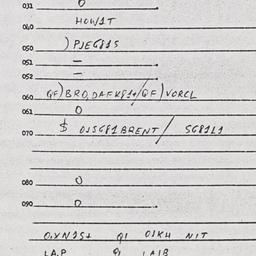 031 0
040 HOW1T
050 ) PJEG81S
051 —
052 —
060 QF)BRO,DAFK81+/QF)VORCL
061 0
070 $ OJSG81BRENT / SG81L1
080 0
090 0
O.YN1S+ QI OJKH NIT
LA.P QI LAIB